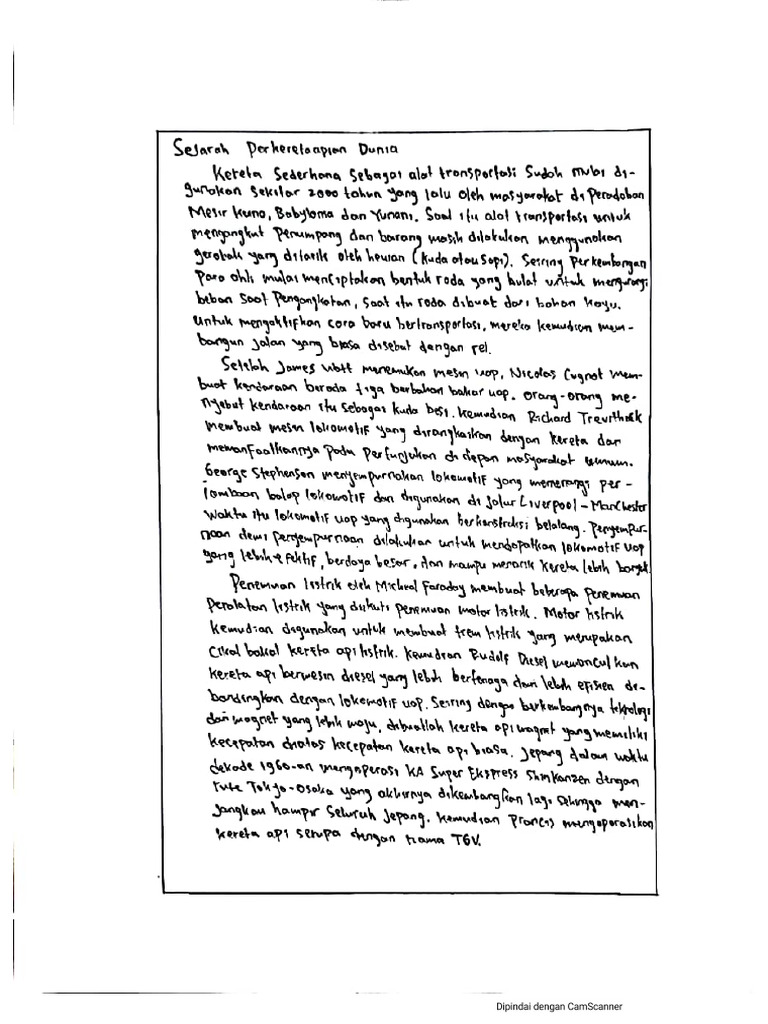 Sejarah Perkeretaapian Dunia
Kereta Sederhana Sebagai alat transportasi Sudah mulai di-
gunakan Sekitar 2000 tahun yang lalu oleh masyarakat di Peradaban
Mesir Kuno, Babylonia dan Yunani. Saat itu alat transportasi untuk
mengangkut Penumpang dan barang masih dilakukan menggunakan
gerobak yang ditarik oleh hewan (kuda atau Sapi). Seiring Perkembangan
Para ahli mulai menciptakan bentuk roda yang bulat untuk mengurangi
beban Saat Pengangkatan, Saat itu roda dibuat dari bahan kayu.
Untuk mengaktifkan cara baru bertransportasi, mereka kemudian mem-
bangun jalan yang biasa disebut dengan rel.
Setelah James Watt menemukan mesin uap, Nicolas Cugnot mem-
buat kendaraan beroda tiga berbahan bakar uap. Orang-orang me-
nyebut kendaraan itu sebagai kuda besi. Kemudian Richard Trevithick
membuat mesin lokomotif yang dirangkaikan dengan kereta dan
memanfaatkannya pada pertunjukan di depan masyarakat umum.
George Stephenson menyempurnakan lokomotif yang memenangi per-
lombaan balap lokomotif dan digunakan di jalur Liverpool - Manchester
Waktu itu lokomotif uap yang digunakan berkonstruksi belalang. Penyempur-
naan demi penyempurnaan dilakukan untuk mendapatkan lokomotif uap
yang lebih efektif, berdaya besar, dan mampu menarik kereta lebih banyak
Penemuan listrik oleh Micheal Faraday membuat beberapa penemuan
Peralatan listrik yang diikuti penemuan motor listrik. Motor listrik
kemudian digunakan untuk membuat trem listrik yang merupakan
Cikal bakal kereta api listrik. Kemudian Rudolf Diesel memunculkan
kereta api bermesin diesel yang lebih bertenaga dan lebih efisien di-
bandingkan dengan lokomotif uap. Seiring dengan berkembangnya teknologi
dan magnet yang lebih maju, dibuatlah kereta api magnet yang memiliki
kecepatan diatas kecepatan kereta api biasa. Jepang dalam waktu
dekade 1960-an mengoperasi KA Super Ekspress Shinkanzen dengan
rute Tokyo-Osaka yang akhirnya dikembangkan lagi Sehingga men-
jangkau hampir Seluruh Jepang. Kemudian Prancis mengoperasikan
kereta api serupa dengan nama TGV.
Dipindai dengan CamScanner